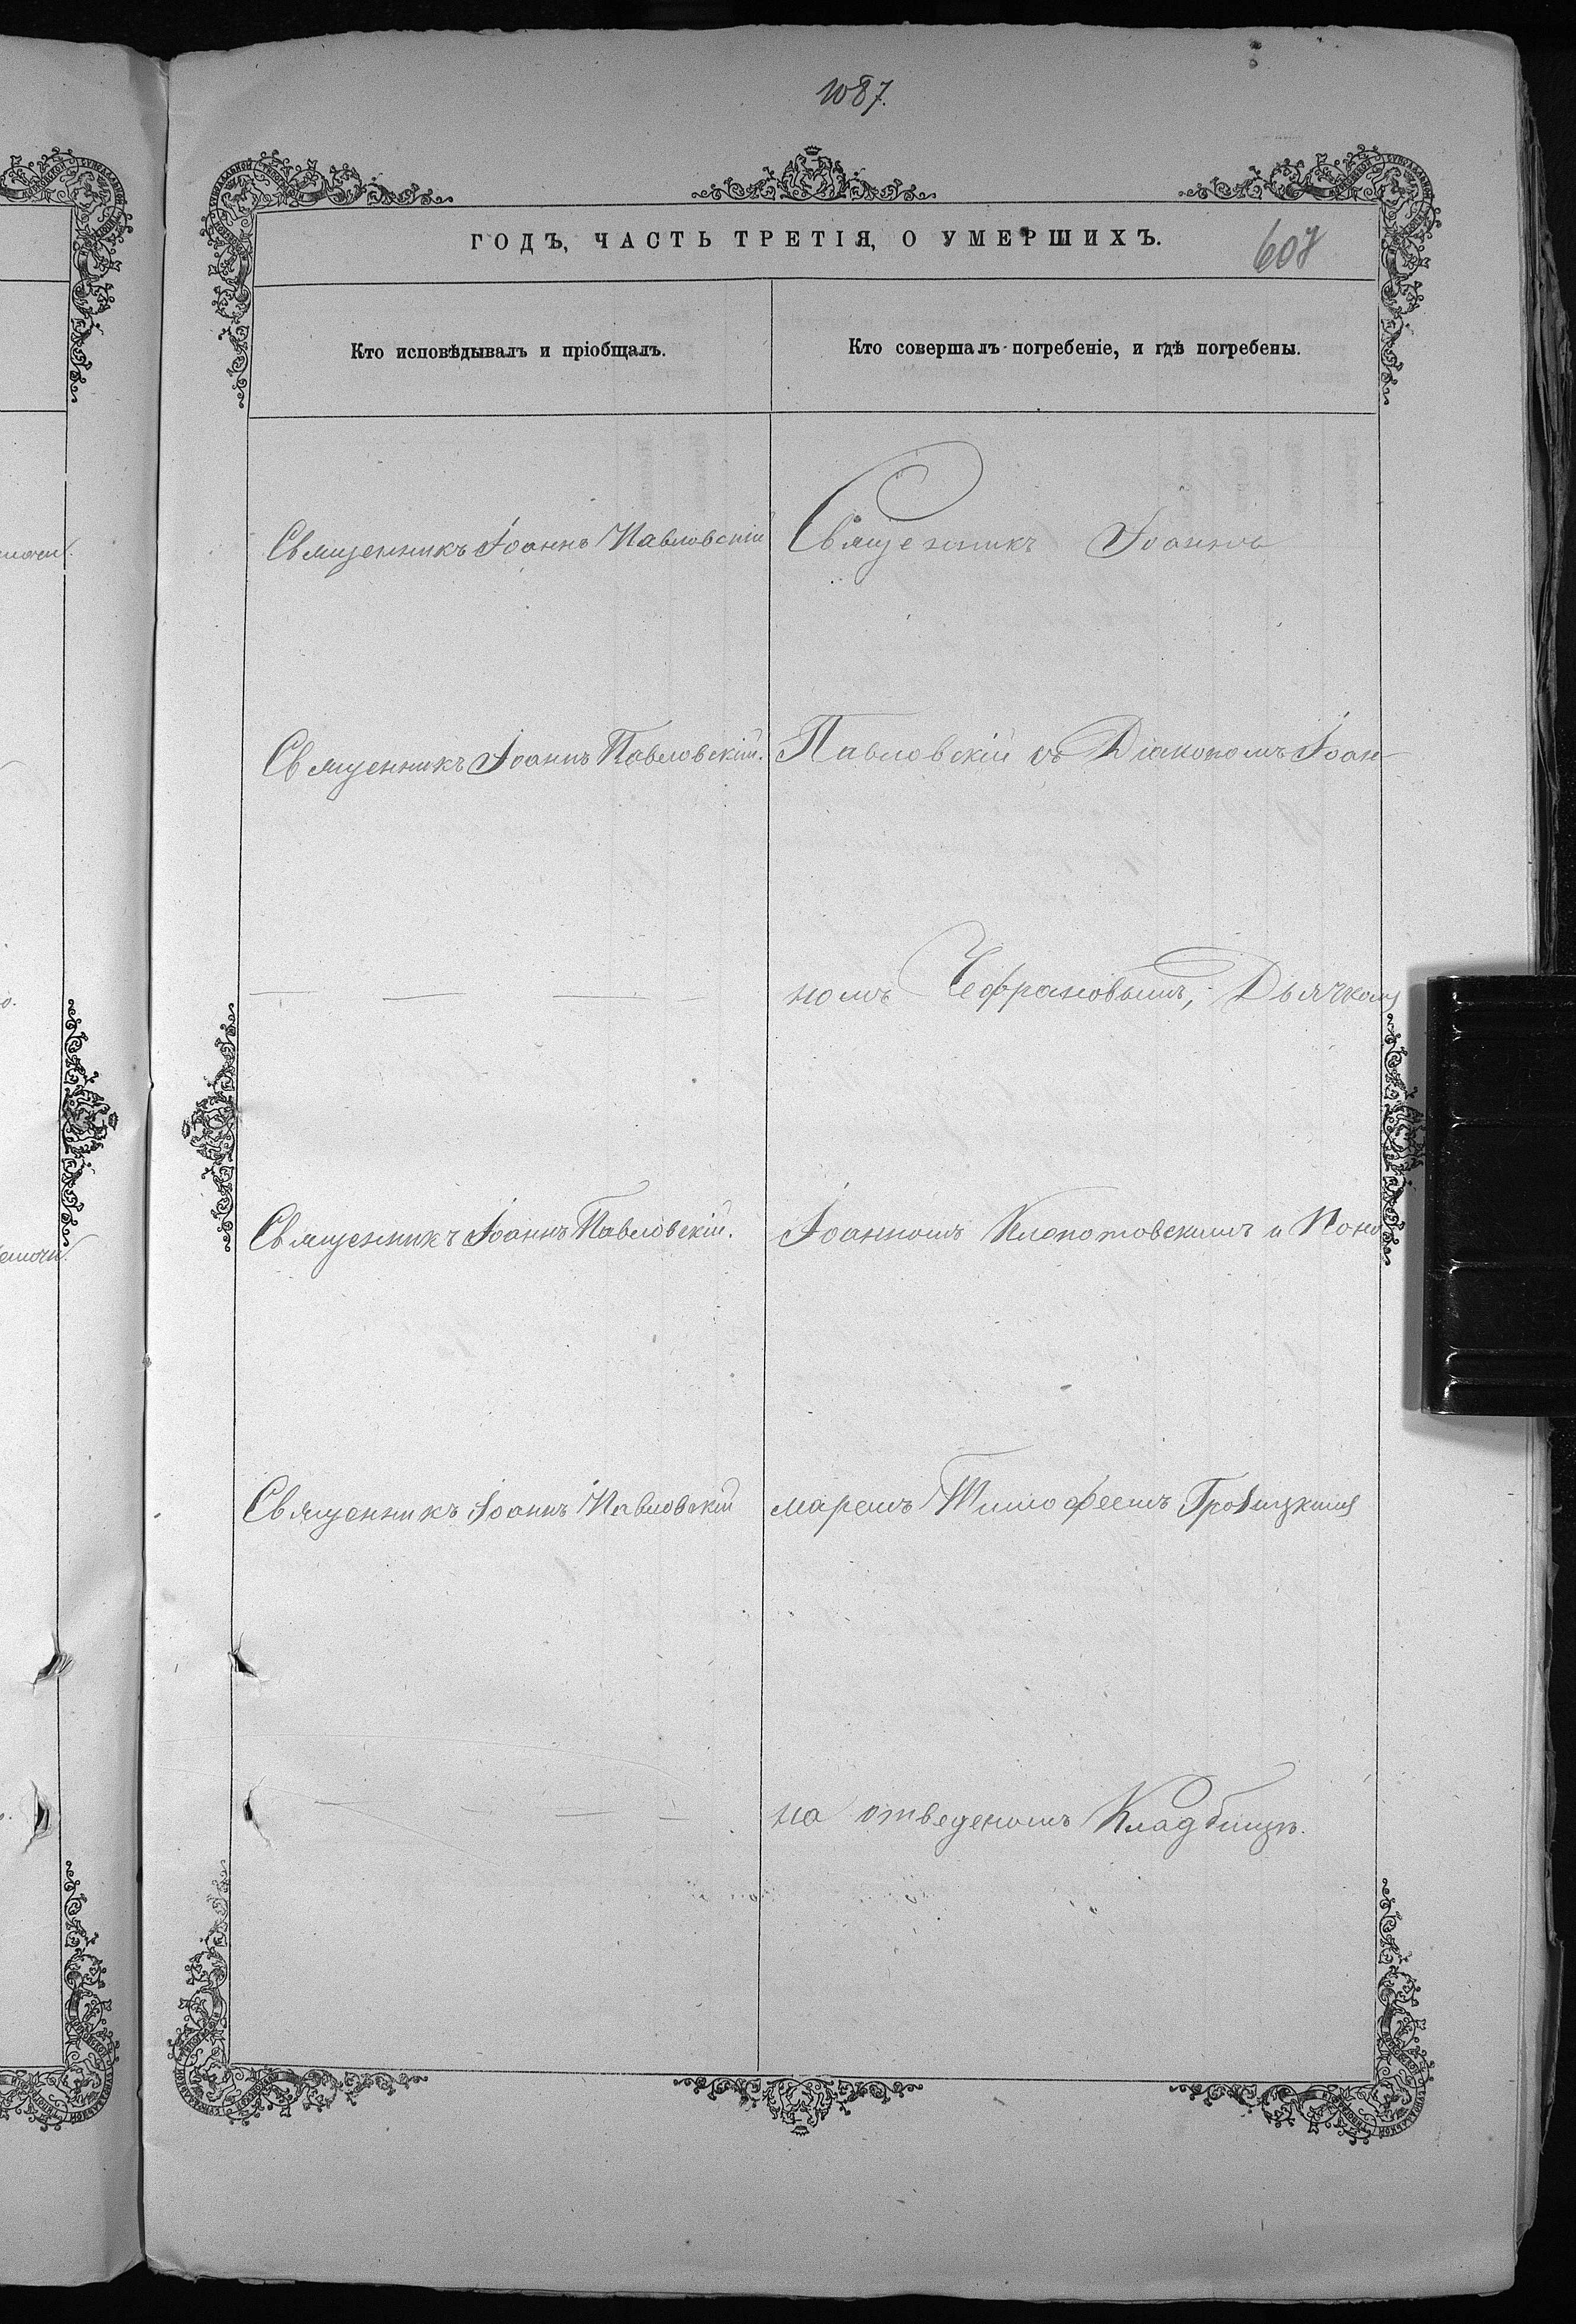 1087.
ГОДЪ, ЧАСТЬ ТРЕТІЯ, О УМЕРШИХЪ.
607
Кто исповѣдывалъ и пріобщалъ.
Кто совершалъ погребеніе, и гдѣ погребены.
Священникъ Іоаннъ Павловскій
Священникъ Іоаннъ
Священникъ Іоаннъ Павловскій.
Павловскій съ Діакономъ Іоан-
номъ Чефрановымъ, Дьячкомъ
Священникъ Іоаннъ Павловскій.
Іоанномъ Клопотовскимъ и Поно
Священникъ Іоаннъ Павловскій
маремъ Тимофеемъ
на отведеномъ Кладбищѣ.